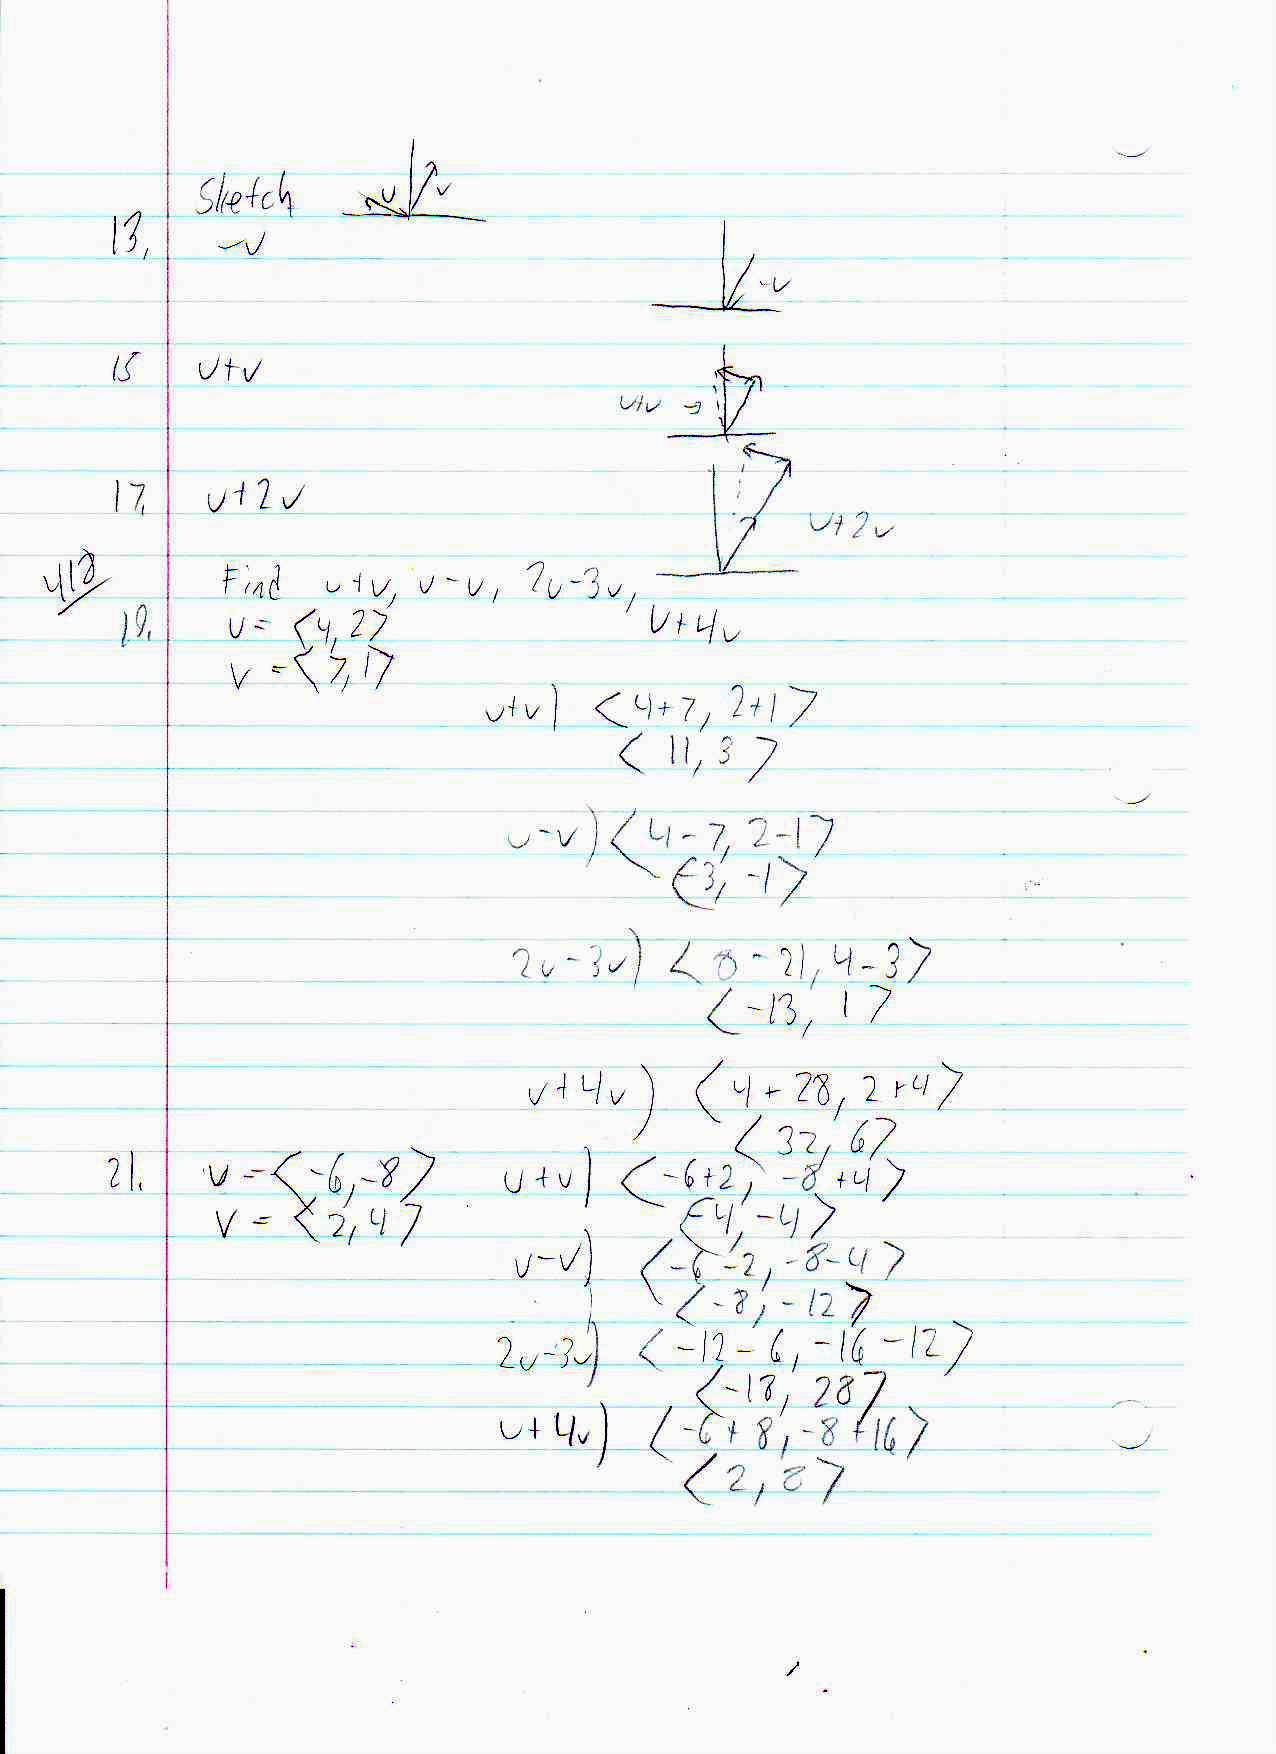 Sketch u v
13. -v
-v
15 u+v
u+v →
17. u+2v
u+2v
Find u+v, u-v, 2u-3v,
u+4v
19. u= <4,2>
v = <7,1>
u+v) <4+7, 2+1>
< 11, 3 >
u-v) <4-7, 2-1>
<-3, -1>
2u-3v) < 8-21, 4-3>
<-13, 1>
u+4v) <4+28, 2+4>
< 32, 6>
21. u = <-6,-8> u+v) <-6+2, -8+4>
v = <2,4> <-4, -4>
u-v) <-6-2, -8-4>
<-8, -12>
2u-3v) <-12-6, -16-12>
<-18, 28>
u+4v) <-6+8, -8+16>
< 2, 8>